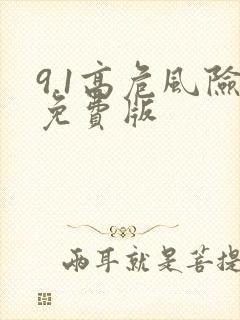 9.1高危风险
免費版
两耳就是菩提